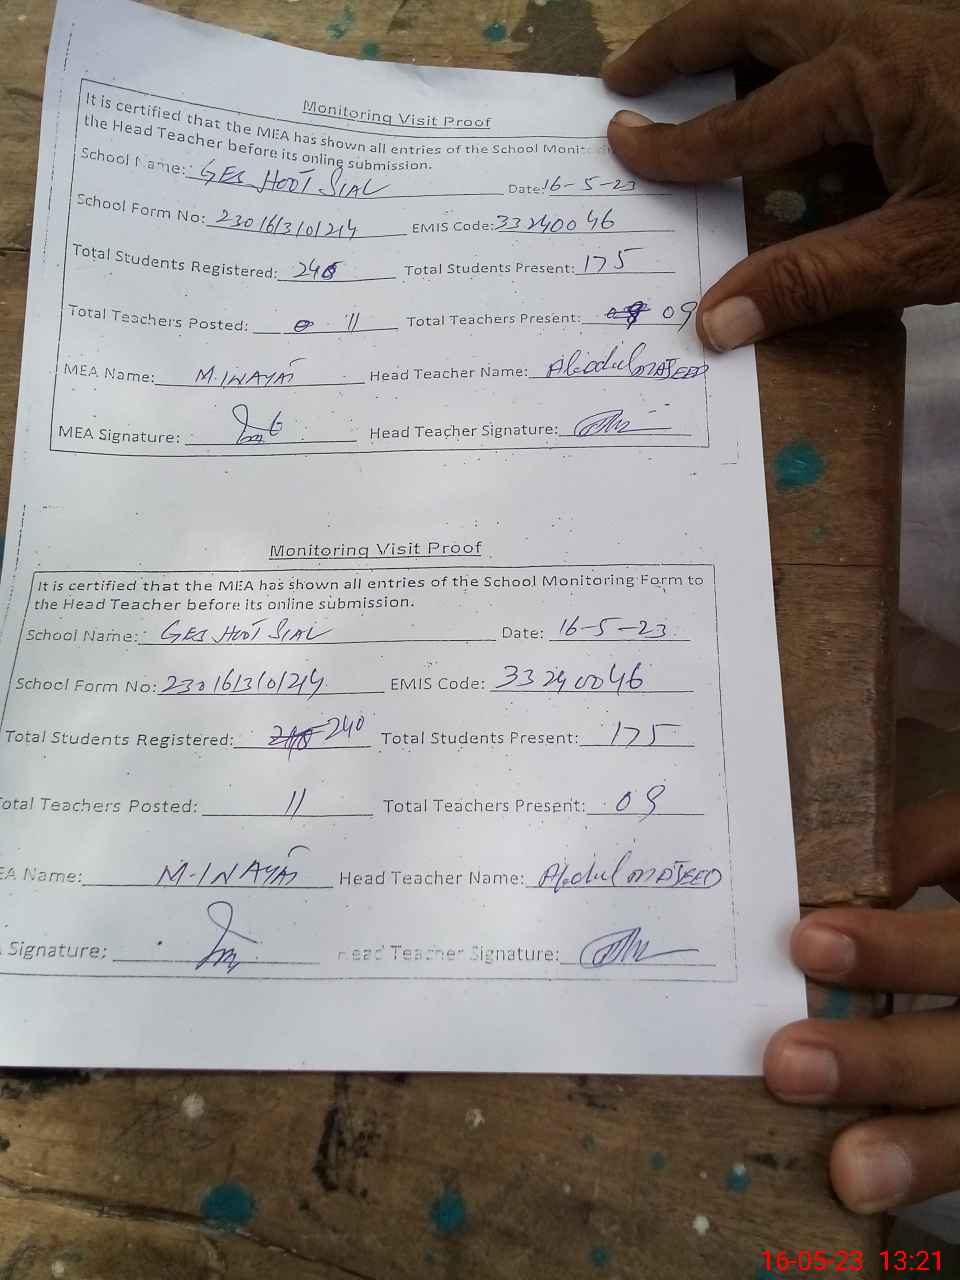 Monitoring Visit Proof
It is certified that the MEA has shown all entries of the School
the Head Teacher before its online submission.
School Name: GES HOOT SIAL Date: 16-5-23
School Form No: 23016/3/0/214 EMIS Code: 33240046
Total Students Registered: 240 Total Students Present: 175
Total Teachers Posted: 11 Total Teachers Present: 09
MEA Name: M.INAYAT Head Teacher Name: Abdul MAJEED
MEA Signature: Head Teacher Signature:
Monitoring Visit Proof
It is certified that the MEA has shown all entries of the School Monitoring Form to
the Head Teacher before its online submission.
School Name: GES HOOT SIAL Date: 16-5-23
School Form No: 23016/3/0/214 EMIS Code: 33240046
Total Students Registered: 240 Total Students Present: 175
Total Teachers Posted: 11 Total Teachers Present: 09
Name: M-INAYAT Head Teacher Name: Abdul MAJEED
Signature: Head Teacher Signature:
16-05-23 13:21